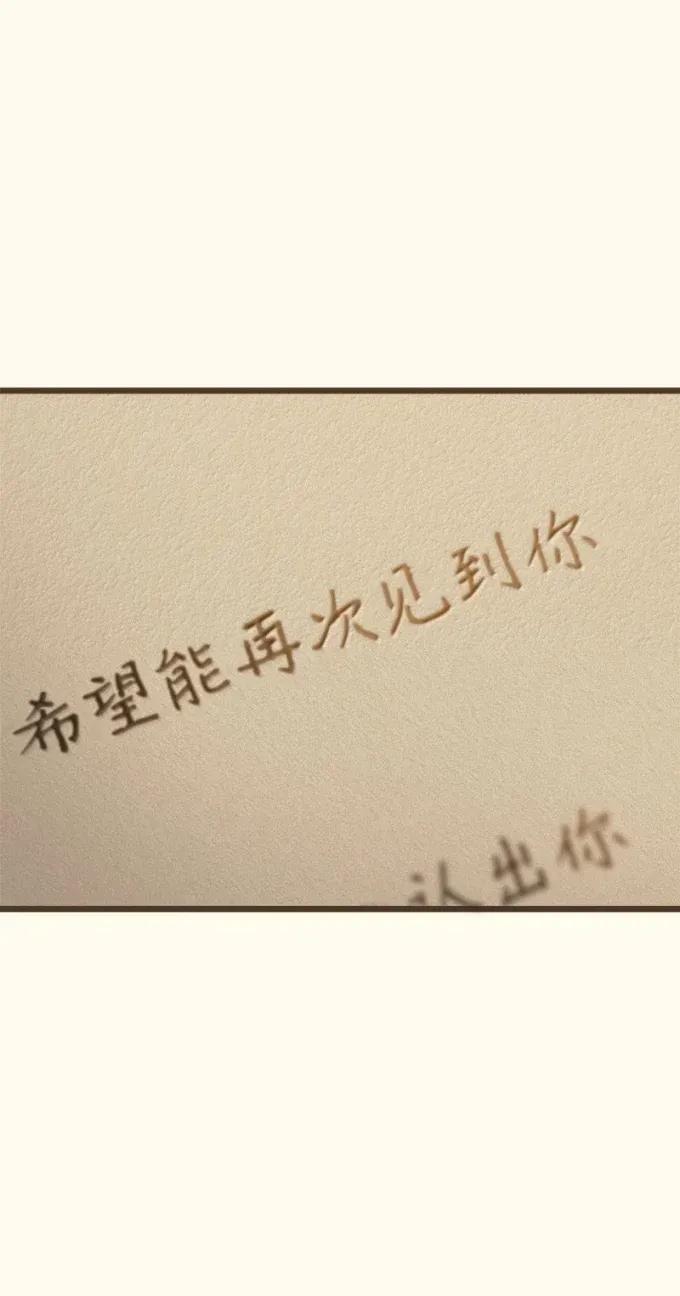 希望能再次见到你
认出你